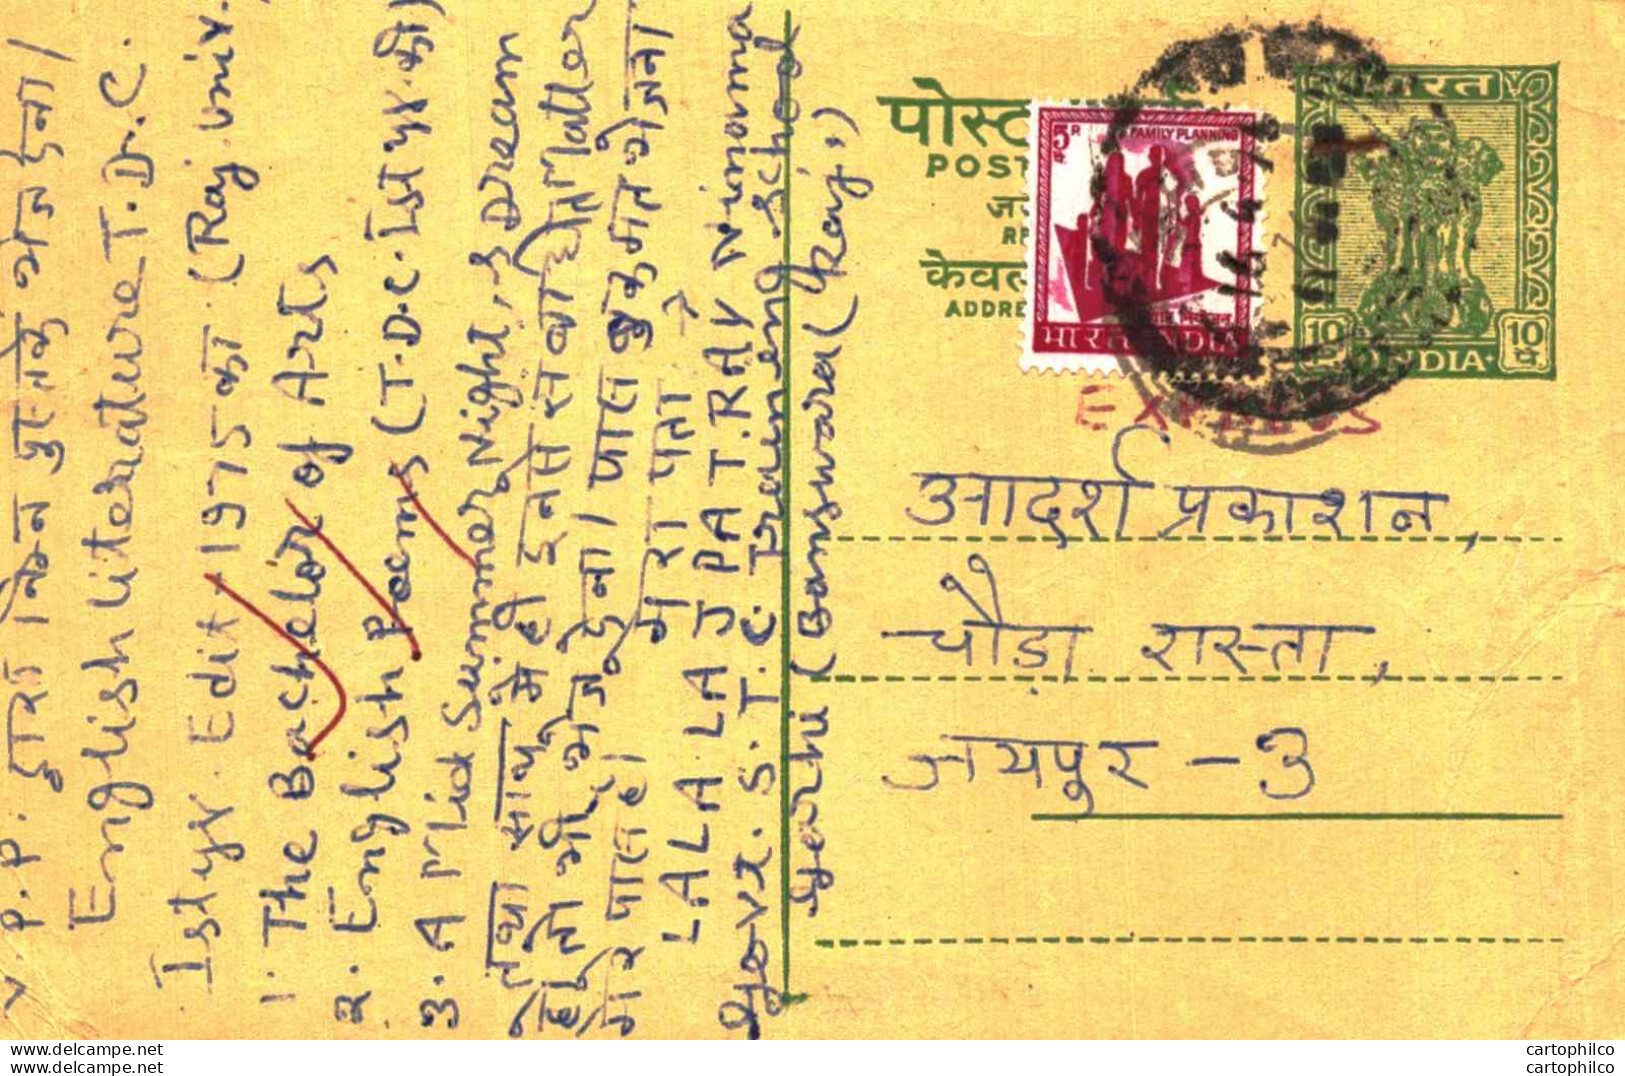 V.P.P. द्वारा निम्न पुस्तकें भेज देना।
English Literature T.D.C.
Ist yr. Edit 1975 का (Raj. Univ.)
1. The Bachelor of Arts
2. English Poems (T.D.C. Ist yr. की)
3. A Mid Summer Night,s Dream
तथा साथ में ही इनसे सम्बन्धित Matter
हो तो भी भेज देना। पास बुक मत भेजना
मेरे पास है।
मेरा पता →
LALA LAJPATRAY Ninama
Govt. S.T.C. Training School
Garhi (Banswara (Raj.)
पोस्ट
POST
केवल
ADDRE
5 P
FAMILY PLANNING
भारत INDIA
भारत
10 10
पै.
INDIA
EXPRESS
आदर्श प्रकाशन,
चौड़ा रास्ता,
जयपुर - 3
cartophilco
cartophilco